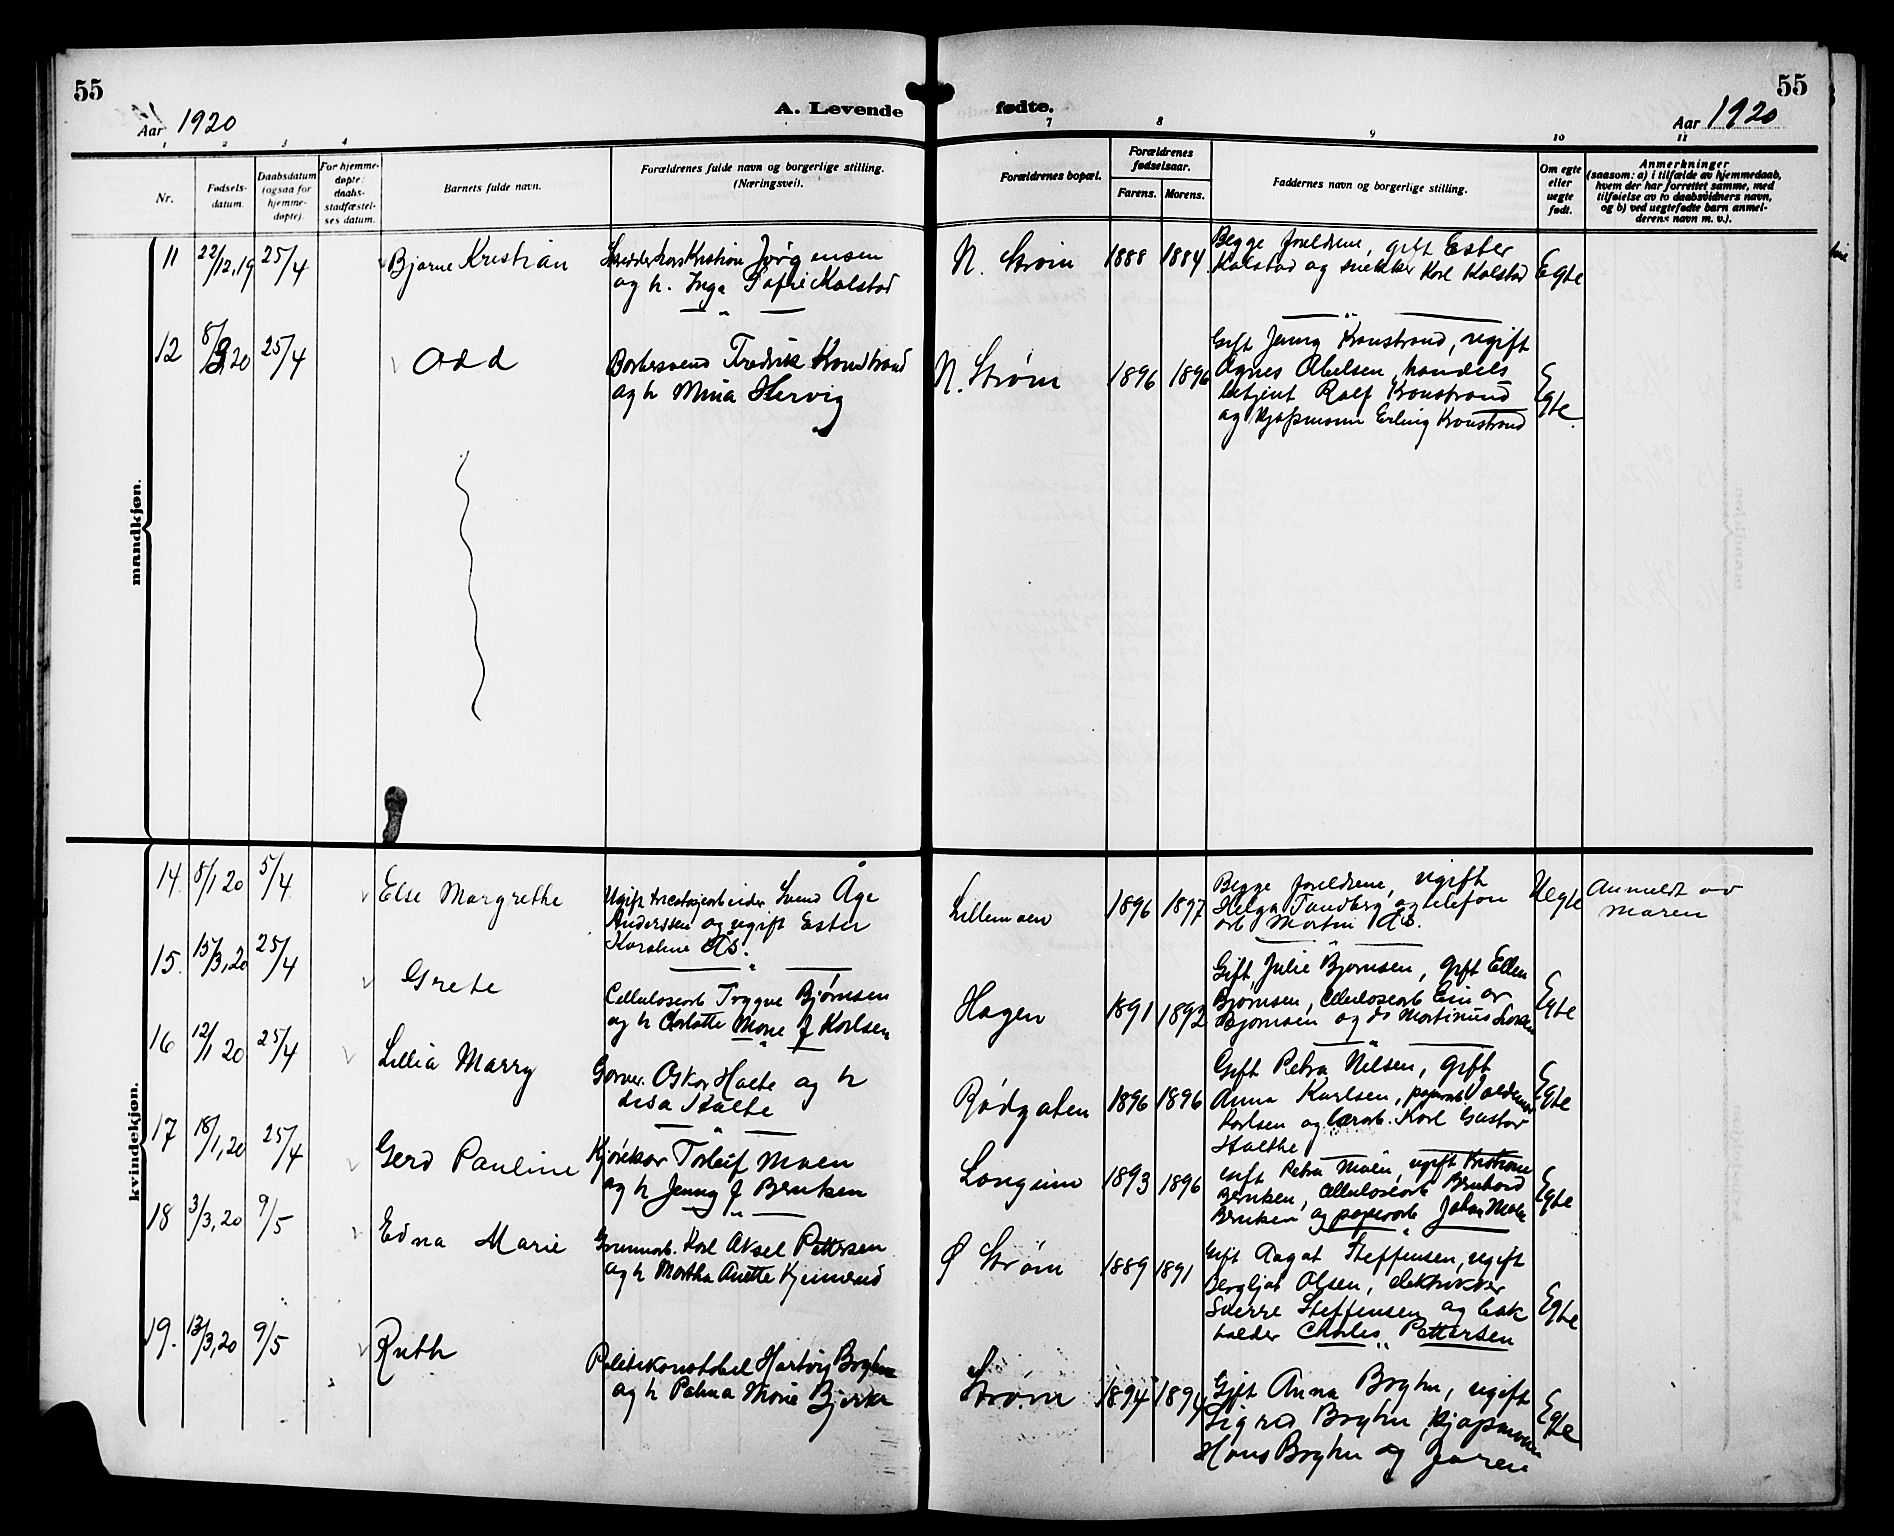 55
Aar 1920
A. Levende
fødte.
55
Aar 1920
1 2 3 4 7 8 9 10 11
Nr.
Fødsels-
datum.
Daabsdatum
(ogsaa for
hjemme-
døpte).
For hjemme-
døpte:
daabs-
stadfæstel-
ses datum.
Barnets fulde navn.
Forældrenes fulde navn og borgerlige stilling.
(Næringsvei).
Forældrenes bopæl.
Forældrenes
fødselsaar.
Farens. Morens.
Faddernes navn og borgerlige stilling.
Om egte
eller
uegte
født.
Anmerkninger
(saasom: a) i tilfælde av hjemmedaab,
hvem der har forrettet samme, med
tilføielse av to daabsvidners navn,
og b) ved uegtefødte barn anmel-
derens navn m. v.).
mandkjøn.
11 22/12,19 25/4 Bjarne Kristian
Kristian Jørgensen
og h. Inga Sofie Kolstad
N. Strøm 1888 1884
Begge foreldrene, gift Ester
Kolstad og snekker Karl Kolstad
Egte
12 8/3,20 25/4 Odd
Fredrik Kronstrand
og h Mina Hervig
N. Strøm 1896 1896
Gift Jenny Kronstrand, ugift
Agnes Abelsen, handels
betjent Rolf Kronstrand
og kjøpmann Erling Kronstrand
Egte.
kvindekjøn.
14. 8/1 20 5/4 Else Margrethe
Ugift Svend Åge
Anderssen og ugift Ester
Karoline Ås.
Lillemoen 1896 1897
Begge foreldrene, ugift
Helga Tandberg og telefon
arb Martin Ås.
Uegte
Anmeldt av
moren
15. 15/3,20 25/4 Grete
Cellulosearb Trygve Bjørnsen
og h Charlotte Marie f Karlsen
Hagen 1891 1892
Gift Julie Bjørnsen, gift Ellen
Bjørnsen, Cellulosearb Einar
Bjørnsen og ds Martinus
Egte
16 12/1 20 25/4 Lillia Marry
Garver. Oskar Holte og h
Lisa Holte
Rødgaten 1896 1896
Gift Petra Nilsen, gift
Anna Karlsen, papirarb. Valdemar
Karlsen og lærarb. Karl Gustav
Holthe
Egte
17 18/1,20 25/4 Gerd Pauline
Kjørekar Torleif Moen
og h Jenny f Berntsen
Longum 1893 1896
Gift Petra Moen, ugift Kristiane
Berntsen, Cellulosearb Bernhard
Berntsen og papirarb Johan Moen
Egte
18 3/3,20 9/5 Edna Marie
Karl Aksel Pettersen
og h Martha Anette Kjennerud
Ø Strøm 1889 1891
Gift Aagot Steffensen, ugift
Bergljot Olsen, elektriker
Sverre Steffensen og bok
holder Charles Pettersen
Egte
19. 13/3,20 9/5 Ruth
Politikonstabel Hartvig Bryhn
og h Palma Marie Bjerke
Strøm 1894 1894
Gift Anna Bryhn, ugift
Sigrid Bryhn, kjøpmann
Hans Bryhn og faren
Egte